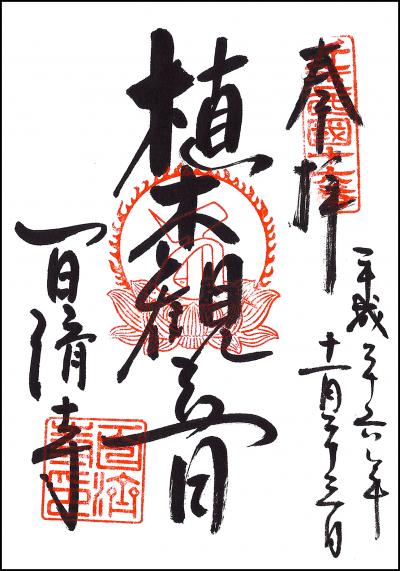 奉拝
平成二十六年
十一月二十三日
植木観音
百済寺